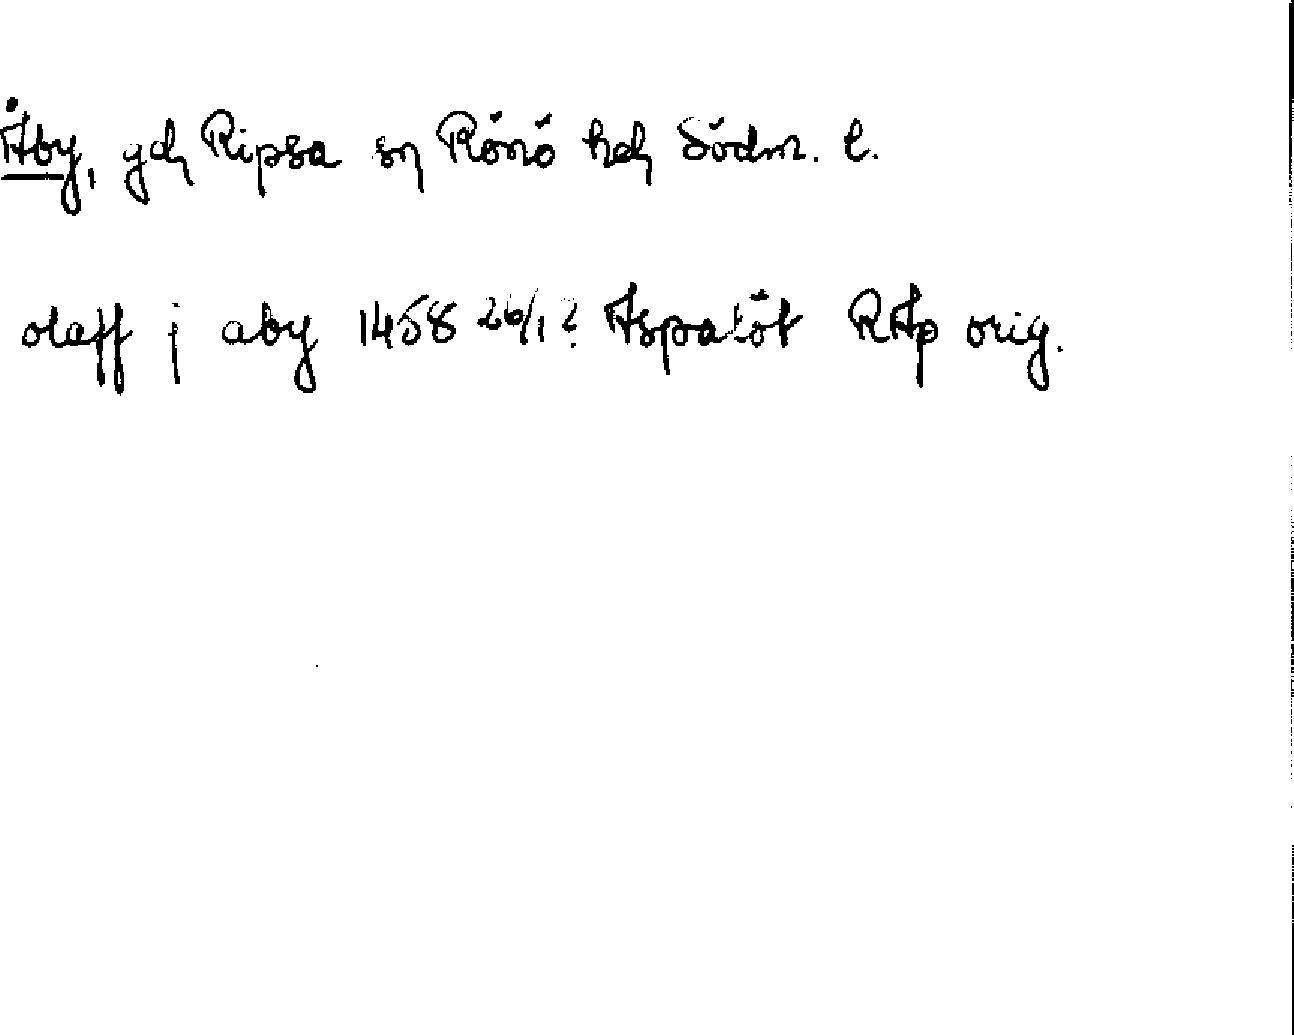 Åby, gd Ripsa sn Rönö hd Södm. l.
olaff j aby 1458 26/1 ? Aspatöt RAp orig.